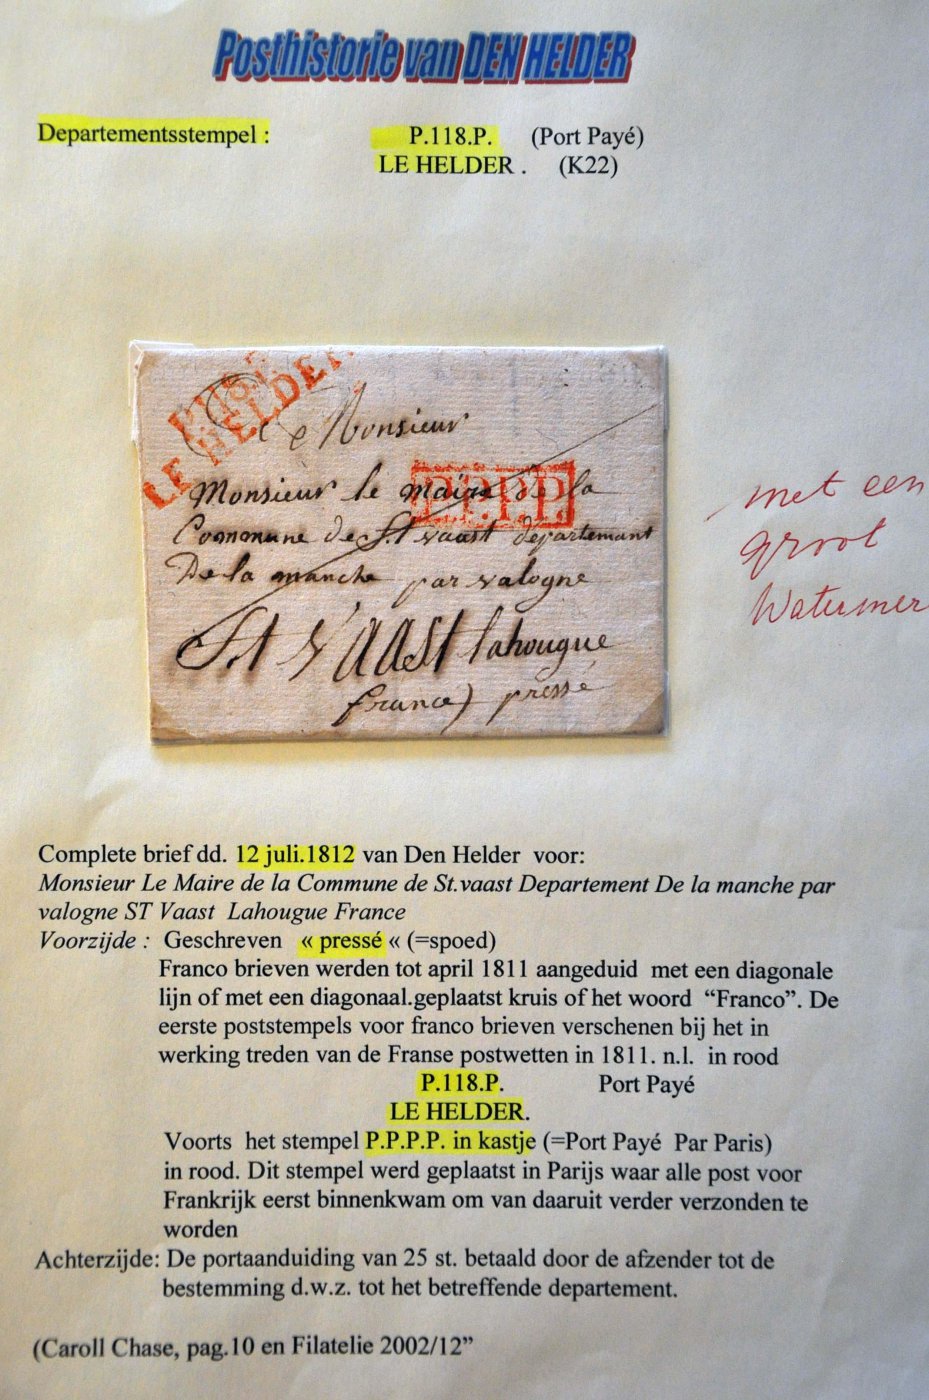 Posthistorie van DEN HELDER
Departementsstempel : P.118.P. (Port Payé)
LE HELDER . (K22)
P.118.P.
LE HELDER.
A Monsieur
Monsieur le maire de la
P.P.P.P.
Commune de St vaast departemant
De la manche par valogne
St Vaast lahougue
france) pressé
met een
groot
Watermer
Complete brief dd. 12 juli.1812 van Den Helder voor:
Monsieur Le Maire de la Commune de St.vaast Departement De la manche par
valogne ST Vaast Lahougue France
Voorzijde : Geschreven « pressé « (=spoed)
Franco brieven werden tot april 1811 aangeduid met een diagonale
lijn of met een diagonaal.geplaatst kruis of het woord “Franco”. De
eerste poststempels voor franco brieven verschenen bij het in
werking treden van de Franse postwetten in 1811. n.l. in rood
P.118.P. Port Payé
LE HELDER.
Voorts het stempel P.P.P.P. in kastje (=Port Payé Par Paris)
in rood. Dit stempel werd geplaatst in Parijs waar alle post voor
Frankrijk eerst binnenkwam om van daaruit verder verzonden te
worden
Achterzijde: De portaanduiding van 25 st. betaald door de afzender tot de
bestemming d.w.z. tot het betreffende departement.
(Caroll Chase, pag.10 en Filatelie 2002/12”